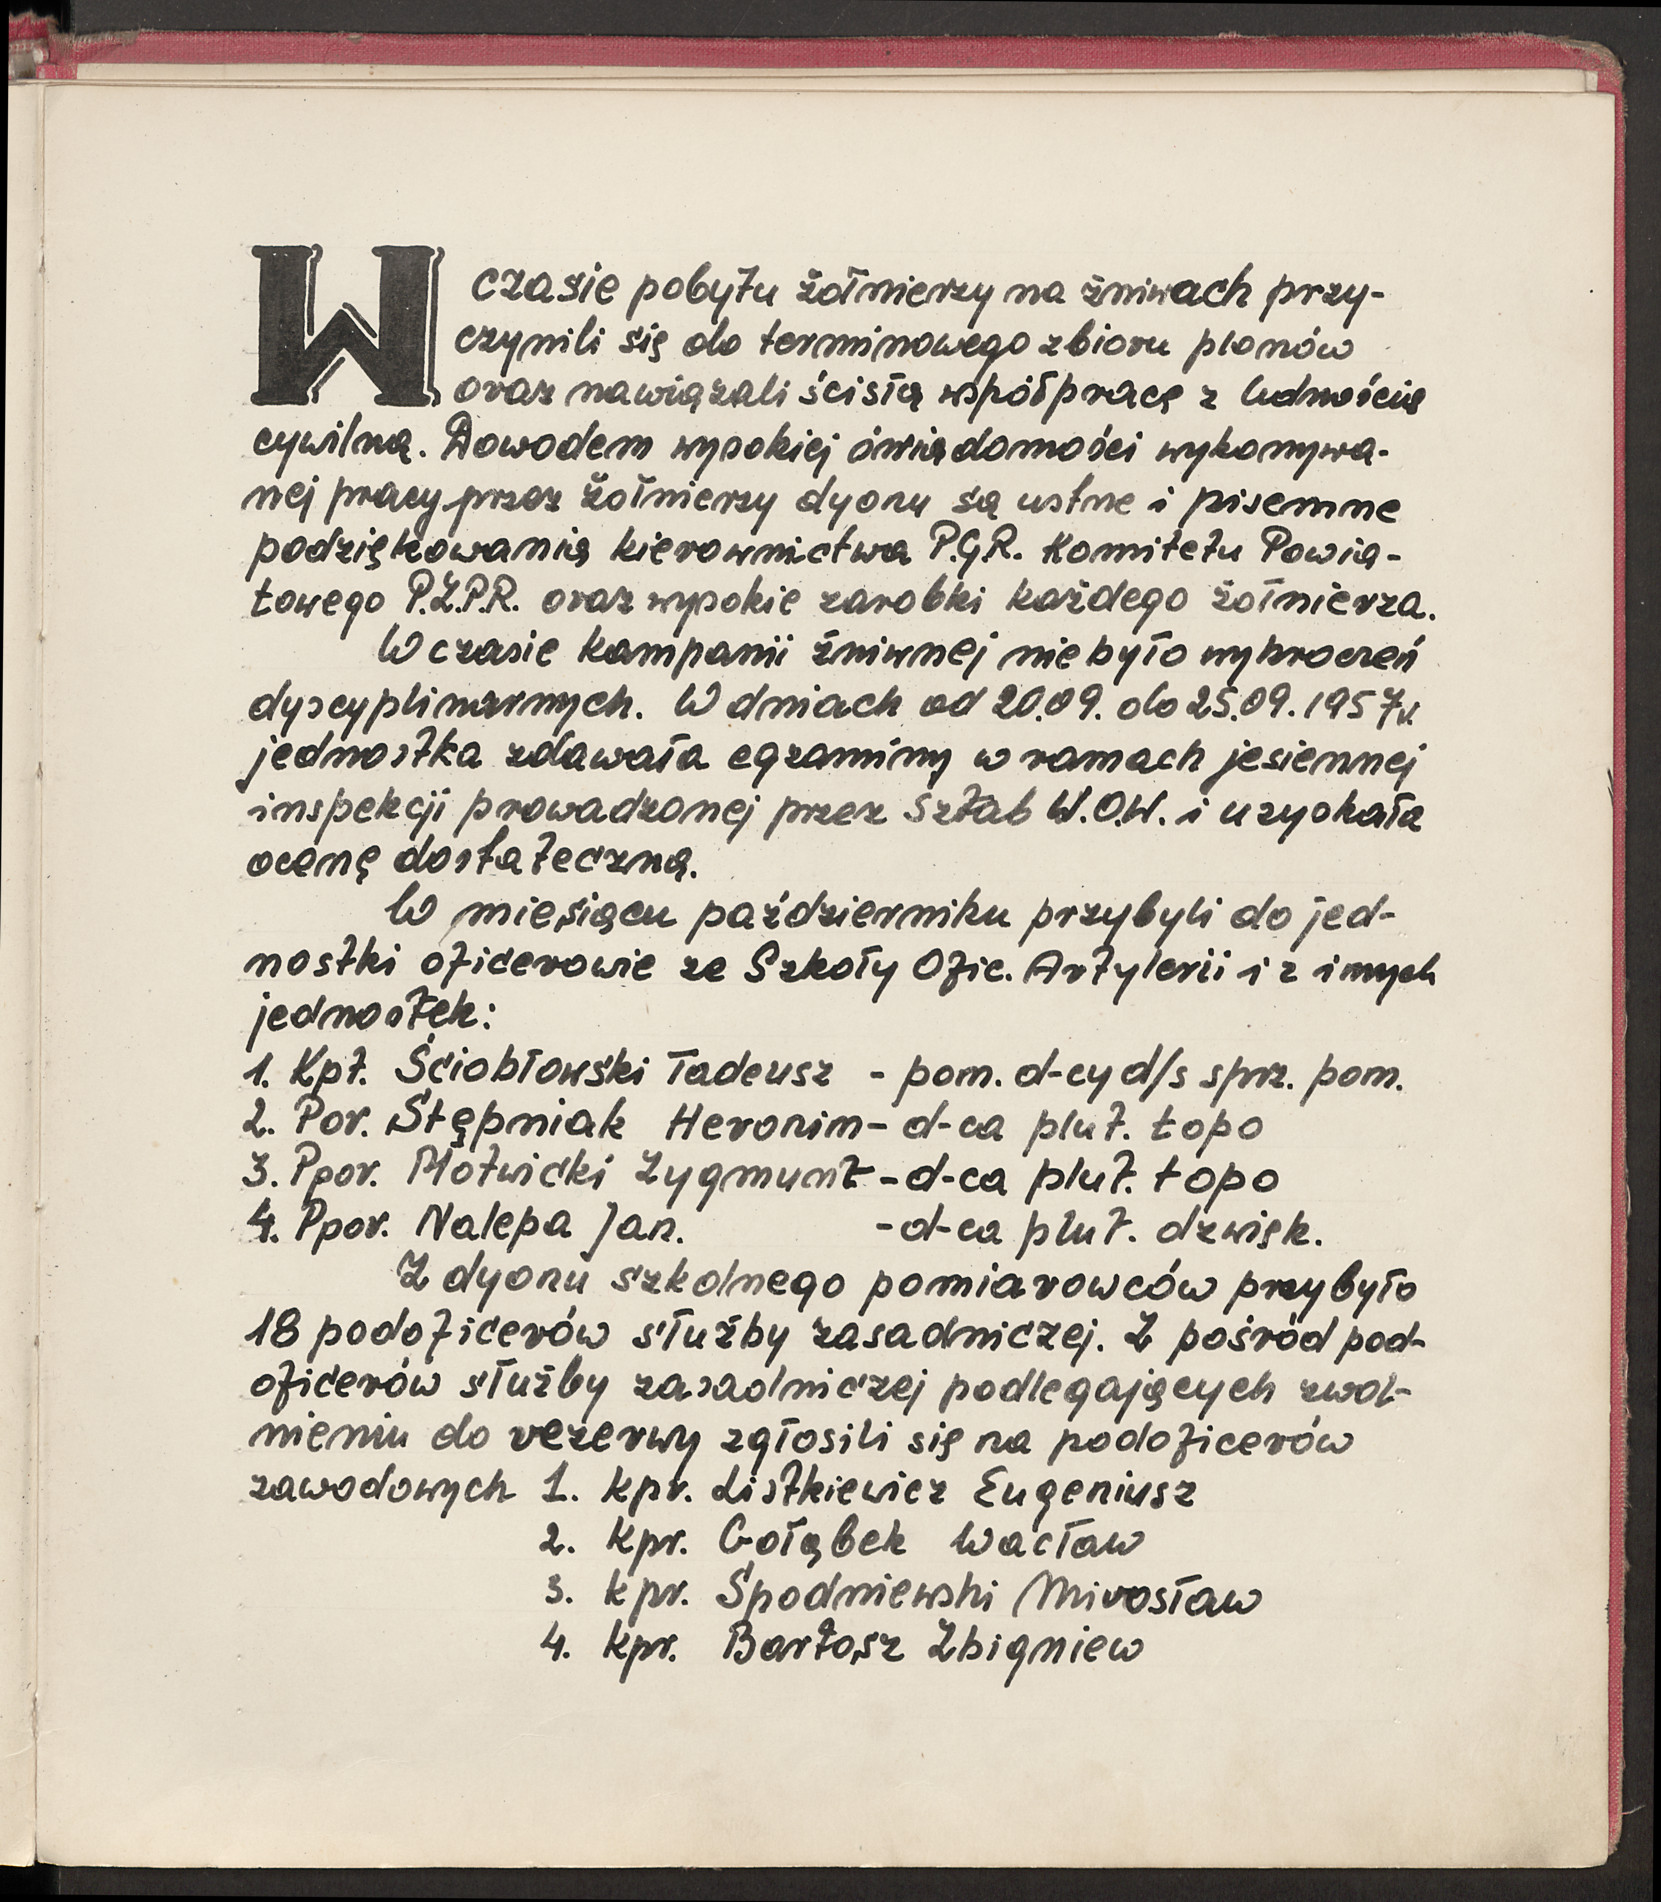 W czasie pobytu żołnierzy na żniwach przy-
czynili się do terminowego zbioru plonów
oraz nawiązali ścisłą współpracę z ludnością
cywilną. Dowodem wysokiej świadomości wykonywa-
nej pracy przez żołnierzy dyonu są ustne i pisemne
podziękowania kierownictwa P.G.R. Komitetu Powia-
towego P.Z.P.R. oraz wysokie zarobki każdego żołnierza.
W czasie kampanii żniwnej nie było wykroczeń
dyscyplinarnych. W dniach od 20.09. do 25.09.1957r.
jednostka zdawała egzaminy w ramach jesiennej
inspekcji prowadzonej przez Sztab W.O.W. i uzyskała
ocenę dostateczną.
W miesiącu październiku przybyli do jed-
nostki oficerowie ze Szkoły Ofic. Artylerii i z innych
jednostek:
1. Kpt. Ściobłowski Tadeusz - pom. d-cy d/s sprz. pom.
2. Por. Stępniak Heronim - d-ca plut. topo
3. Ppor. Młotwicki Zygmunt - d-ca plut. topo
4. Ppor. Nalepa Jan. - d-ca plut. dzwięk.
Z dyonu szkolnego pomiarowców przybyło
18 podoficerów służby zasadniczej. Z pośród pod-
oficerów służby zasadniczej podlegających zwol-
nieniu do rezerwy zgłosili się na podoficerów
zawodowych 1. kpr. Listkiewicz Eugeniusz
2. kpr. Gołąbek Wacław
3. kpr. Spodniewski Mirosław
4. kpr. Bartosz Zbigniew